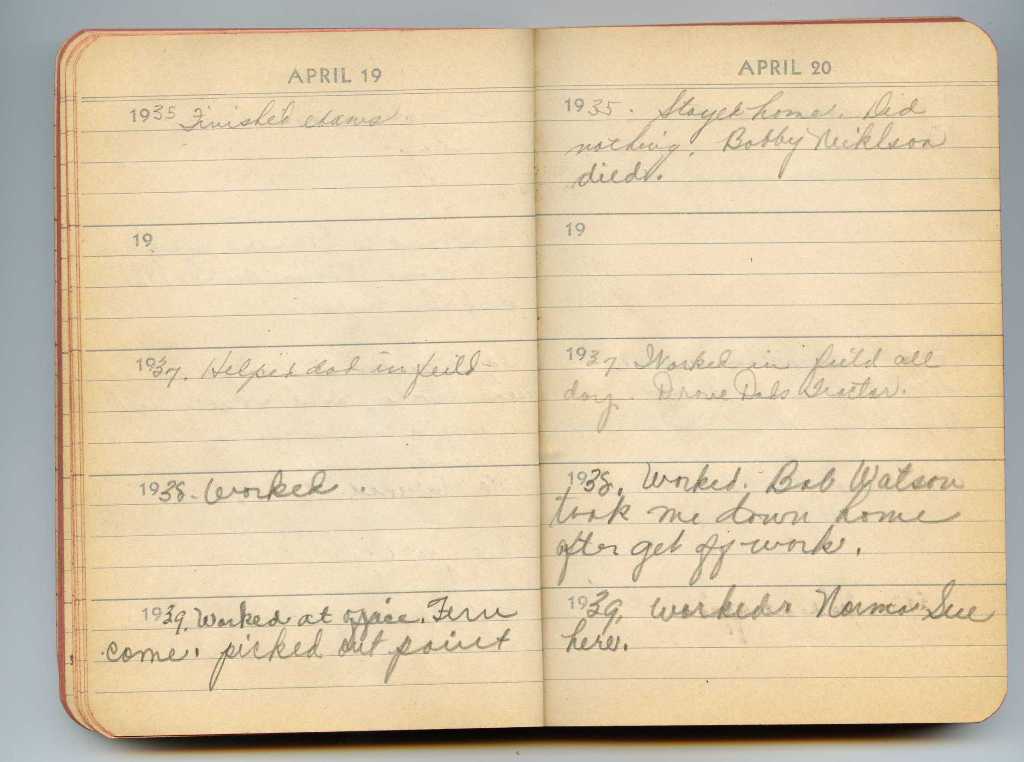 APRIL 19
1935 Finished exams
19
1937. Helped dad in feild
1938. Worked
1939. Worked at office. Fern
come. picked out paint
APRIL 20
1935. Stayed home. Did
nothing. Bobby Niklson
died.
19
1937 Worked in feild all
day. Drove Dads Tractor.
1938. Worked. Bob Watson
took me down home
after get off work.
1939. worked. Norma Sue
here.